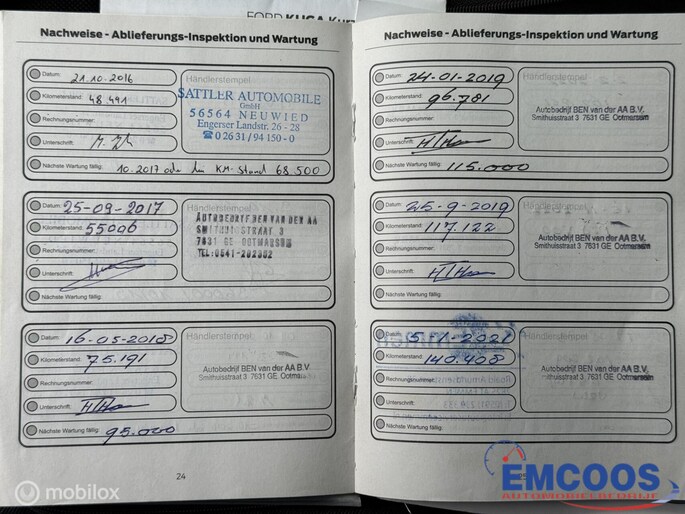 FORD KUGA
Nachweise - Ablieferungs-Inspektion und Wartung
Datum: 21.10.2016
Kilometerstand: 48.491
Rechnungsnummer:
Unterschrift:
Nächste Wartung fällig: 10.2017 oder bei KM-Stand 68.500
Händlerstempel
SATTLER AUTOMOBILE
GmbH
56564 NEUWIED
Engerser Landstr. 26 - 28
☎ 0 26 31 / 94 150 - 0
Datum: 25-09-2017
Kilometerstand: 55006
Rechnungsnummer:
Unterschrift:
Nächste Wartung fällig:
AUTOBEDRIJF BEN VAN DEN AA
SMITHUISSTRAAT 3
7631 GE OOTMARSUM
TEL:0541-292002
Datum: 16-05-2018
Kilometerstand: 75.191
Rechnungsnummer:
Unterschrift:
Nächste Wartung fällig: 95.000
Händlerstempel
Autobedrijf BEN van der AA B.V.
Smithuisstraat 3 7631 GE Ootmarsum
24
Nachweise - Ablieferungs-Inspektion und Wartung
Datum: 24-01-2019
Kilometerstand: 96.781
Rechnungsnummer:
Unterschrift:
Nächste Wartung fällig: 115.000
Händlerstempel
Autobedrijf BEN van der AA B.V.
Smithuisstraat 3 7631 GE Ootmarsum
Datum: 25-9-2019
Kilometerstand: 117.122
Rechnungsnummer:
Unterschrift:
Nächste Wartung fällig:
Händlerstempel
Autobedrijf BEN van der AA B.V.
Smithuisstraat 3 7631 GE Ootmarsum
Datum: 5-1-2021
Kilometerstand: 140.408
Rechnungsnummer:
Unterschrift:
Nächste Wartung fällig:
Händlerstempel
Autobedrijf BEN van der AA B.V.
Smithuisstraat 3 7631 GE Ootmarsum
25
EMCOOS
AUTOMOBIELBEDRIJF
mobilox